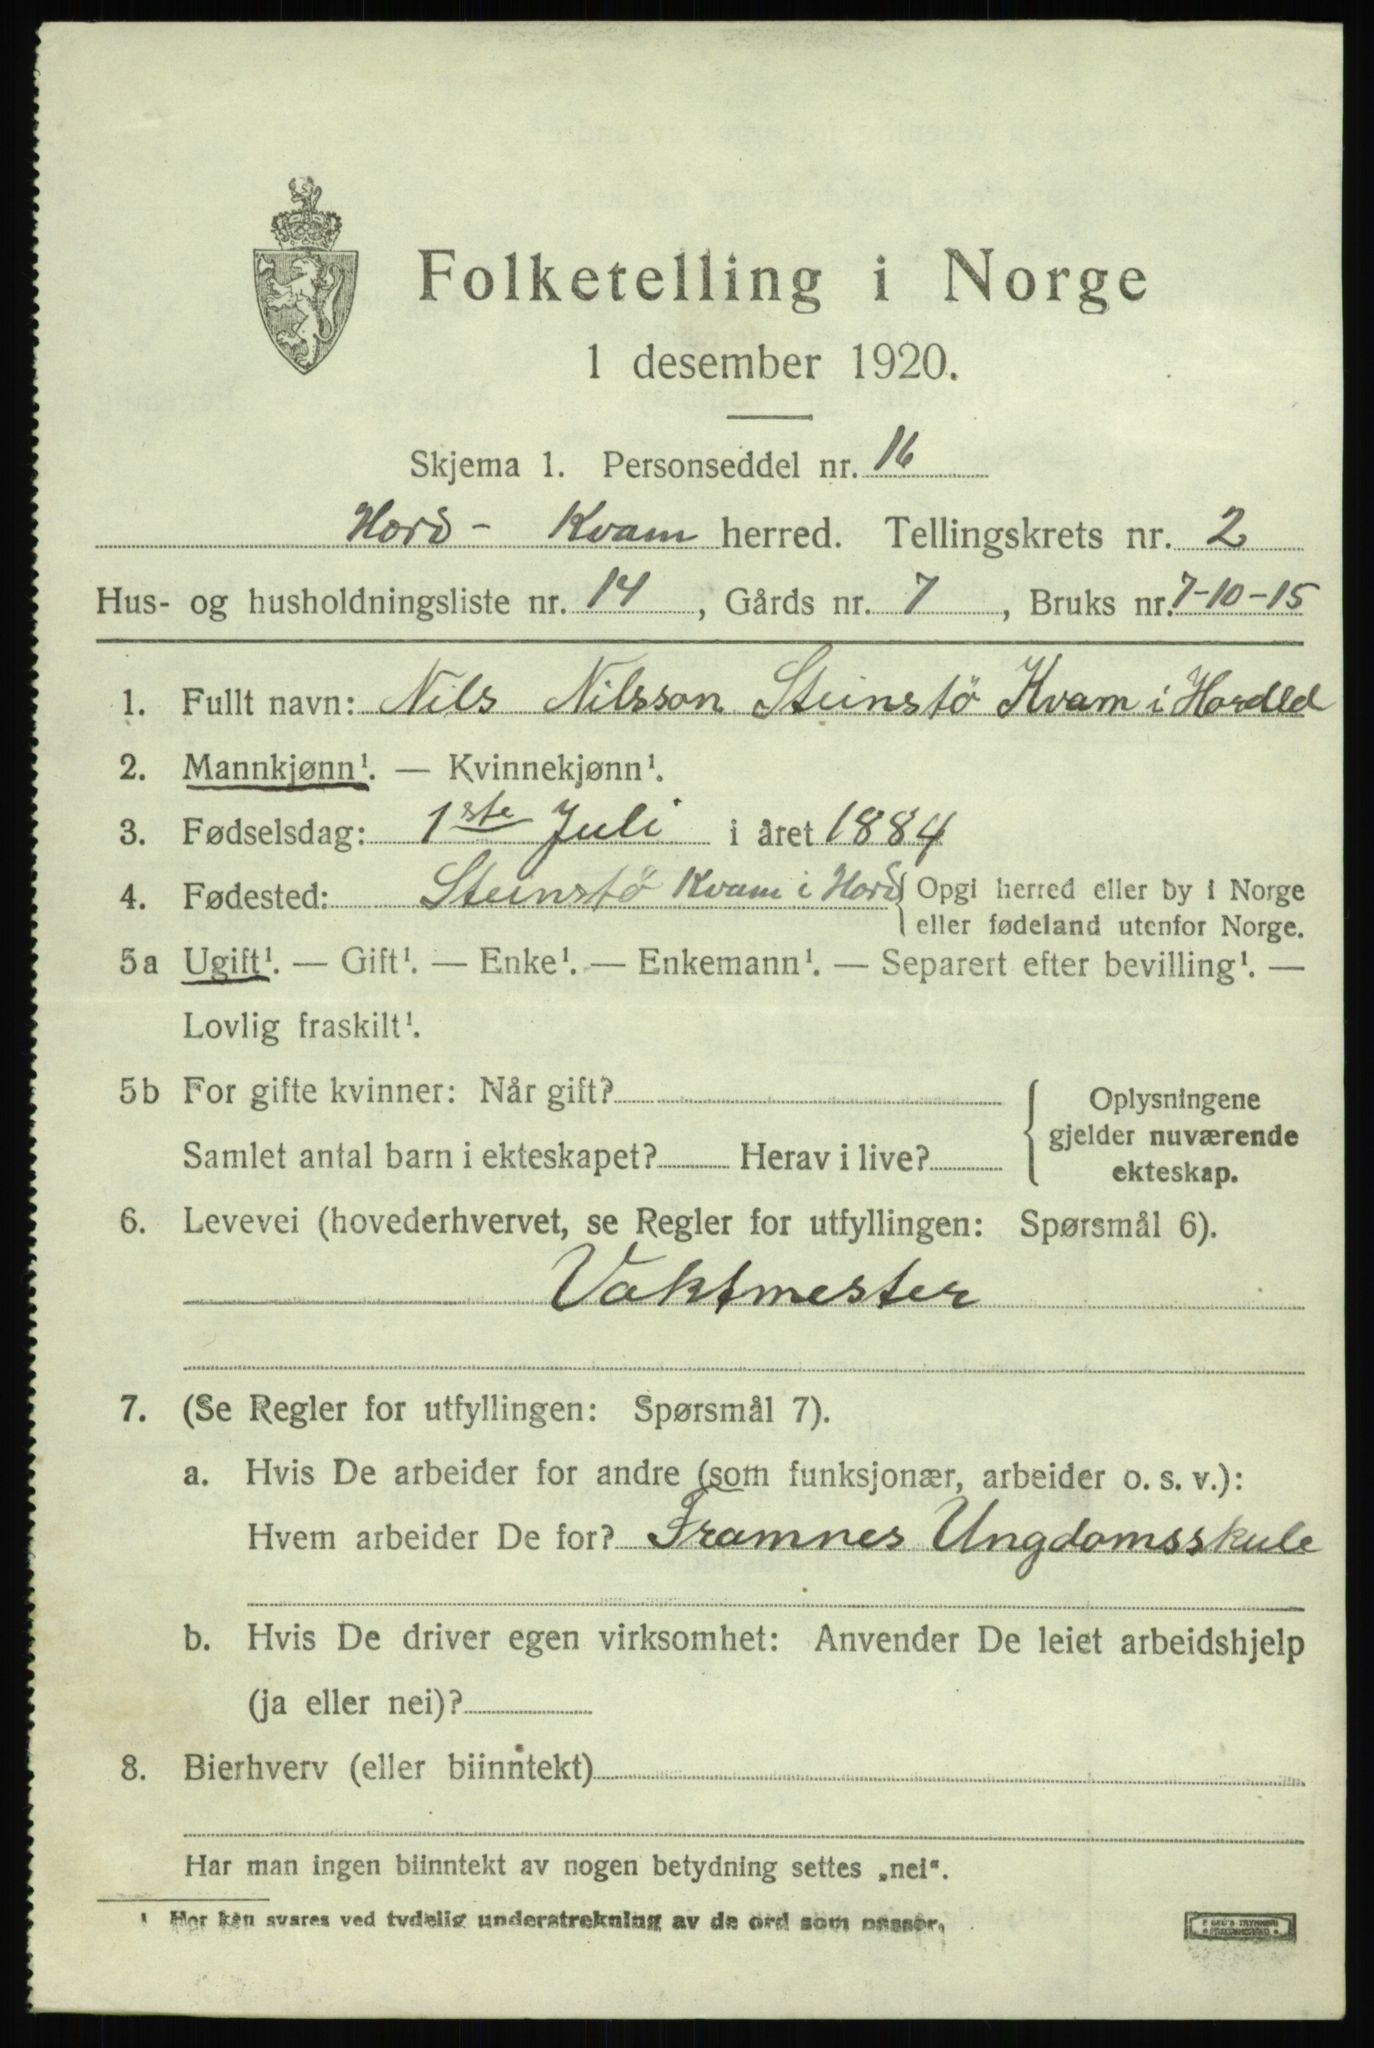 Folketelling i Norge
1 desember 1920.
Skjema 1. Personseddel nr. 16
Hord- Kvam herred. Tellingskrets nr. 2
Hus- og husholdningsliste nr. 14, Gårds nr. 7, Bruks nr. 7-10-15
1. Fullt navn: Nils Nilsson Steinstö Kvam i Hordld
2. Mannkjønn¹. — Kvinnekjønn¹.
3. Fødselsdag: 1ste Juli i året 1884
4. Fødested: Steinstö Kvam i Hord { Opgi herred eller by i Norge
eller fødeland utenfor Norge.
5a Ugift¹. — Gift¹. — Enke¹. — Enkemann¹. — Separert efter bevilling¹. —
Lovlig fraskilt¹.
5b For gifte kvinner: Når gift?
Samlet antal barn i ekteskapet? Herav i live?
{ Oplysningene
gjelder nuværende
ekteskap.
6. Levevei (hovederhvervet, se Regler for utfyllingen: Spørsmål 6).
Vaktmester
7. (Se Regler for utfyllingen: Spørsmål 7).
a. Hvis De arbeider for andre (som funksjonær, arbeider o. s. v.):
Hvem arbeider De for? Framnes Ungdomsskule
b. Hvis De driver egen virksomhet: Anvender De leiet arbeidshjelp
(ja eller nei)?
8. Bierhverv (eller biinntekt)
Har man ingen biinntekt av nogen betydning settes „nei“.
¹ Her kan svares ved tydelig understrekning av de ord som passer.